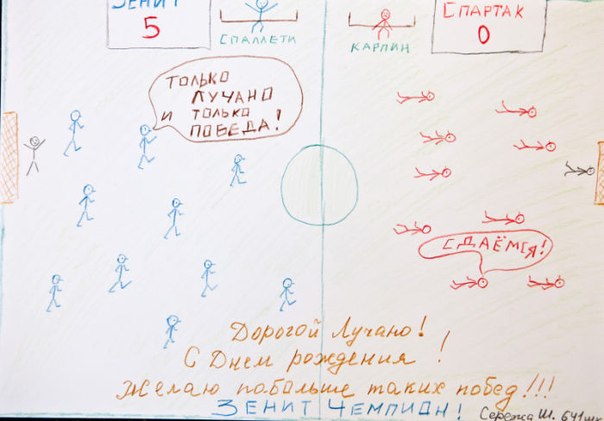 ЗЕНИТ
5
СПАЛЛЕТИ
КАРПИН
СПАРТАК
0
ТОЛЬКО
ЛУЧАНО
И ТОЛЬКО
ПОБЕДА!
СДАЁМСЯ!
Дорогой Лучано!
С Днем рождения!
Желаю побольше таких побед!!!
ЗЕНИТ ЧЕМПИОН!
Сережа Ш. 641 шк